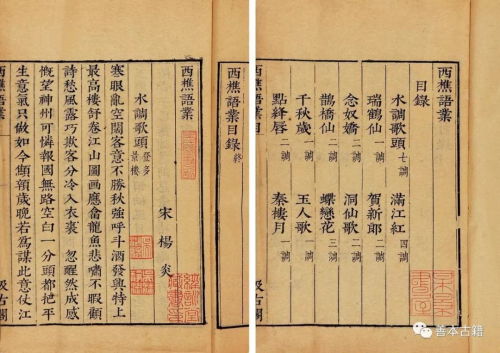 西樵語業
目錄
水調歌頭 七調 滿江紅 四調
瑞鶴仙 一調 賀新郎 二調
念奴嬌 二調 洞仙歌 二調
鵲橋仙 二調 蝶戀花 三調
千秋歲 一調 玉人歌 一調
點絳唇 二調 秦樓月 一調
西樵語業目
汲古閣
西樵語業目錄 終
西樵語業
宋 楊炎
水調歌頭 登多景樓
寒眼亂空闊客意不勝秋強呼斗酒發興特上
最高樓舒卷江山圖畫應畣龍魚悲嘯不暇顧
詩愁風露巧欺客分冷入衣裘 忽醒然成感
慨望神州可憐報國無路空白一分頭都把平
生意氣只做如今顦顇歲晚若為謀此意仗江
西樵語業
汲古閣
善本古籍